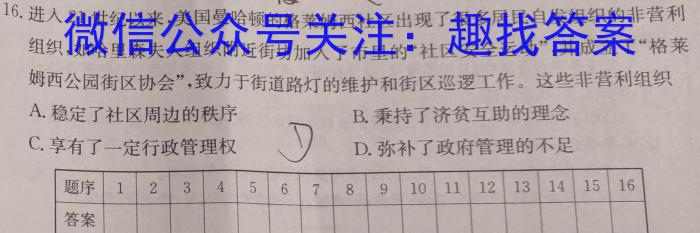 16.进入21世纪以来,美国曼哈顿的格莱姆西社区出现了许多居民自发组织的非营利
组织,如哈里森夫人组织附近街坊加入了市里的“社区安全运动”,并成立了“格莱
姆西公园街区协会”,致力于街道路灯的维护和街区巡逻工作。这些非营利组织
微信公众号关注:趣找答案
A.稳定了社区周边的秩序 B.秉持了济贫互助的理念
C.享有了一定行政管理权 D D.弥补了政府管理的不足
题序 1 2 3 4 5 6 7 8 9 10 11 12 13 14 15 16
答案